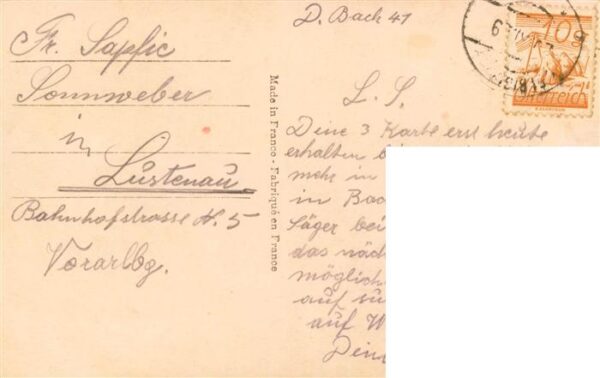 Fr. Sapfie
Sonnweber
in
Lustenau
Bahnhofstrasse N. 5
Vorarlbg.
Made in France - Fabriqué en France
D. Bach 41
10
Österreich
L. S.
Deine 3 Karte erst heute
erhalten
mehr in
in
Jäger bei
das näch
möglich
auf
auf W
Dein